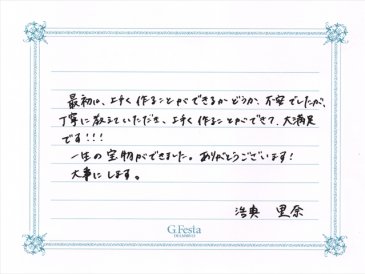 最初は、上手く作ることができるかどうか、不安でしたが、
丁寧に教えていただき、上手く作ることができて、大満足
です!!!
一生の宝物ができました。ありがとうございます!
大事にします。
浩典 里奈
G.Festa